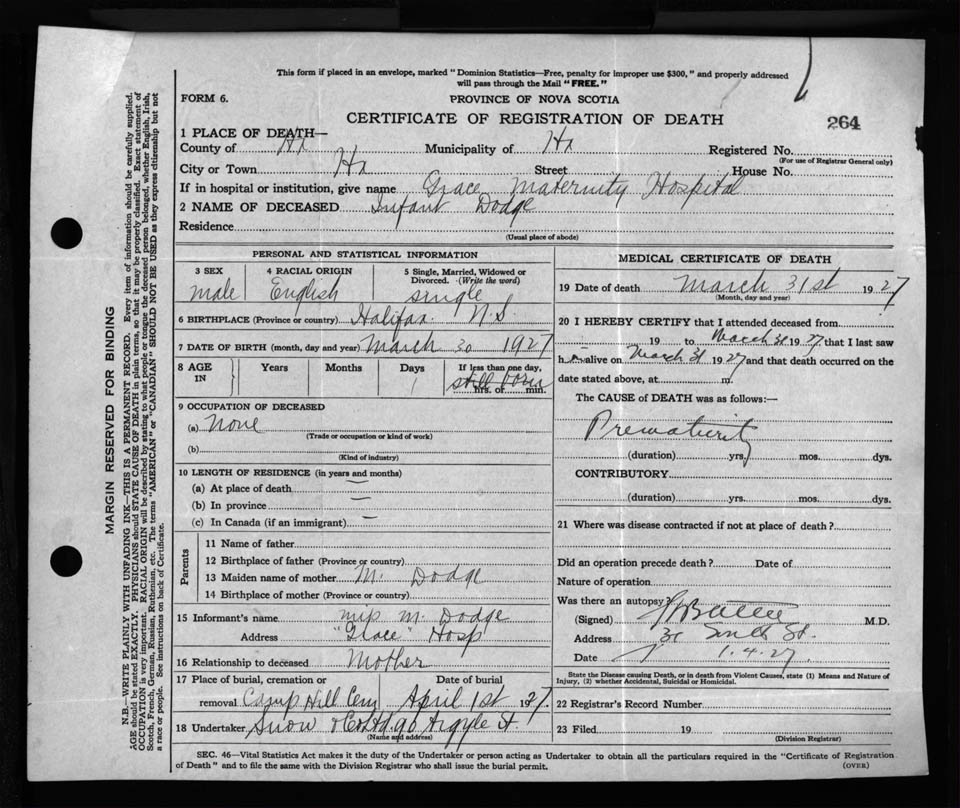 This form if placed in an envelope, marked "Dominion Statistics—Free, penalty for improper use $300," and properly addressed
will pass through the Mail "FREE."
FORM 6.
PROVINCE OF NOVA SCOTIA
CERTIFICATE OF REGISTRATION OF DEATH
264
1 PLACE OF DEATH—
County of Hx Municipality of Hx Registered No.
(For use of Registrar General only)
City or Town Hx Street House No.
If in hospital or institution, give name Grace Maternity Hospital
2 NAME OF DECEASED Infant Dodge
Residence
(Usual place of abode)
PERSONAL AND STATISTICAL INFORMATION
3 SEX 4 RACIAL ORIGIN 5 Single, Married, Widowed or Divorced. (Write the word)
male English single
6 BIRTHPLACE (Province or country) Halifax N.S
7 DATE OF BIRTH (month, day and year) March 30 1927
8 AGE IN Years Months Days If less than one day,
1 still born hrs. or min.
9 OCCUPATION OF DECEASED
(a) None
(Trade or occupation or kind of work)
(b)
(Kind of industry)
10 LENGTH OF RESIDENCE (in years and months)
(a) At place of death —
(b) In province —
(c) In Canada (if an immigrant) —
Parents
11 Name of father
12 Birthplace of father (Province or country)
13 Maiden name of mother M. Dodge
14 Birthplace of mother (Province or country)
15 Informant's name Miss M. Dodge
Address "Grace" Hosp
16 Relationship to deceased Mother
17 Place of burial, cremation or removal Date of burial
Camp Hill Cem April 1st 1927
18 Undertaker Snow & Co Ltd. 90 Argyle St
(Name and address)
MEDICAL CERTIFICATE OF DEATH
19 Date of death March 31st 1927
(Month, day and year)
20 I HEREBY CERTIFY that I attended deceased from
19 to March 31 1927 that I last saw
h alive on March 31 1927 and that death occurred on the
date stated above, at m.
The CAUSE of DEATH was as follows:—
Prematurity
(duration) yrs. mos. dys.
CONTRIBUTORY
(duration) yrs. mos. dys.
21 Where was disease contracted if not at place of death?
Did an operation precede death? Date of
Nature of operation
Was there an autopsy?
(Signed) M.D.
Address St.
Date 1.4.27.
State the Disease causing Death, or in death from Violent Causes, state (1) Means and Nature of
Injury, (2) whether Accidental, Suicidal or Homicidal.
22 Registrar's Record Number
23 Filed 19
(Division Registrar)
SEC. 46—Vital Statistics Act makes it the duty of the Undertaker or person acting as Undertaker to obtain all the particulars required in the "Certificate of Registration
of Death" and to file the same with the Division Registrar who shall issue the burial permit.
(OVER)
MARGIN RESERVED FOR BINDING
N.B.—WRITE PLAINLY WITH UNFADING INK—THIS IS A PERMANENT RECORD. Every item of information should be carefully supplied.
AGE should be stated EXACTLY. PHYSICIANS should STATE CAUSE OF DEATH in plain terms, so that it may be properly classified. Exact statement of
OCCUPATION is very important. RACIAL ORIGIN will be described by stating to what people or tongue the deceased person belonged, whether English, Irish,
Scotch, French, German, Russian, Ruthenian, etc. The terms "AMERICAN" or "CANADIAN" SHOULD NOT BE USED as they express citizenship but not
a race or people. See instructions on back of Certificate.